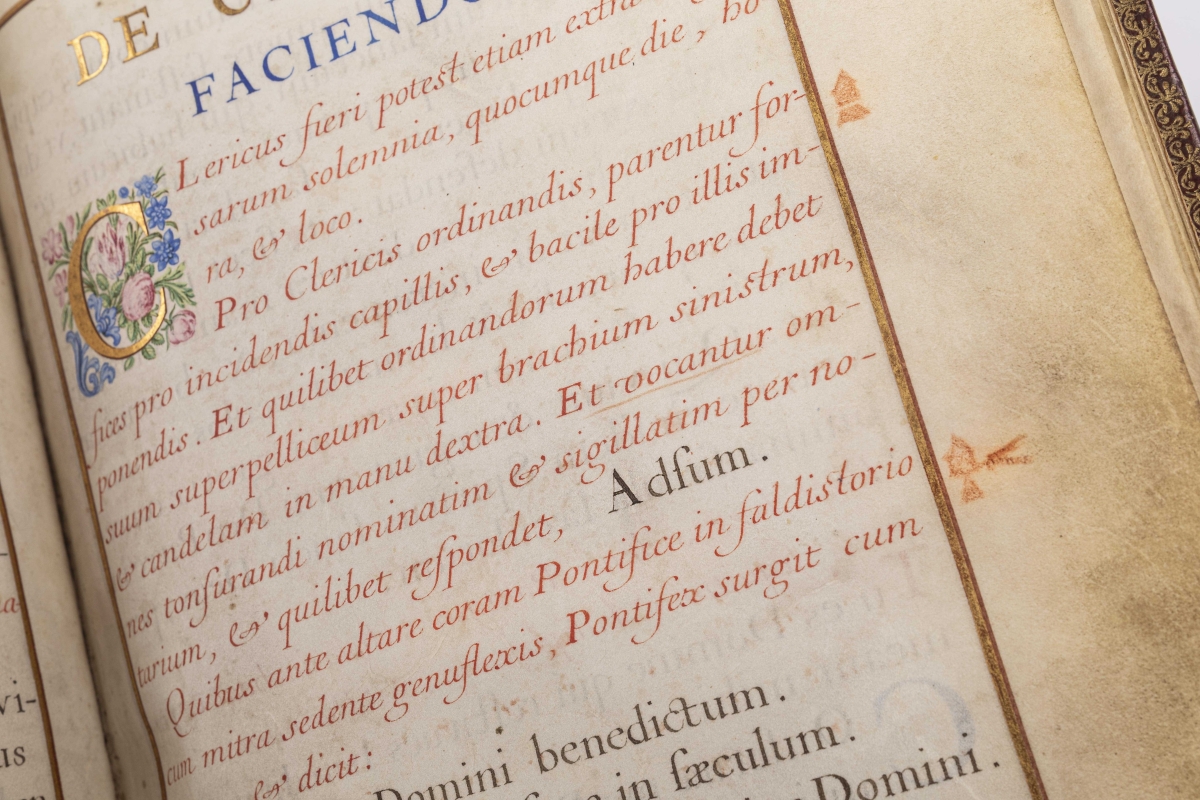 DE
FACIENDO
CLericus fieri potest etiam extra
sarum solemnia, quocumque die, ho
ra, & loco.
Pro Clericis ordinandis, parentur for-
fices pro incidendis capillis, & bacile pro illis im-
ponendis. Et quilibet ordinandorum habere debet
suum superpelliceum super brachium sinistrum,
& candelam in manu dextra. Et vocantur om-
nes tonſurandi nominatim & sigillatim per no-
tarium, & quilibet reſpondet, Adſum.
Quibus ante altare coram Pontifice in faldistorio
cum mitra sedente genuflexis, Pontifex surgit cum
& dicit:
Domini benedictum.
in ſæculum.
Domini.
vi-
us